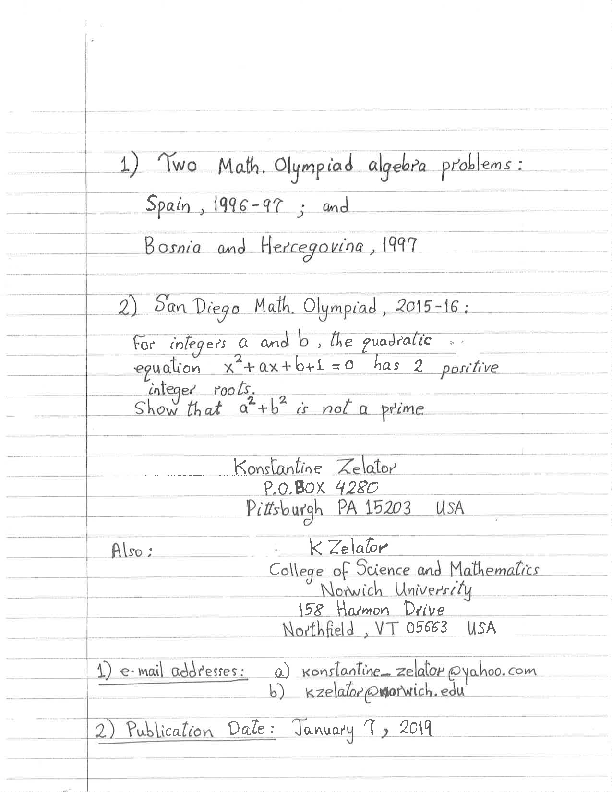 1) Two Math. Olympiad algebra problems:
Spain, 1996-97 ; and
Bosnia and Hercegovina, 1997
2) San Diego Math. Olympiad, 2015-16:
For integers a and b, the quadratic
equation x²+ax+b+1=0 has 2 positive
integer roots.
Show that a²+b² is not a prime
Konstantine Zelator
P.O.BOX 4280
Pittsburgh PA 15203 USA
Also: K Zelator
College of Science and Mathematics
Norwich University
158 Harmon Drive
Northfield, VT 05663 USA
1) e-mail addresses: a) konstantine_zelator@yahoo.com
b) kzelator@norwich.edu
2) Publication Date: January 7, 2019